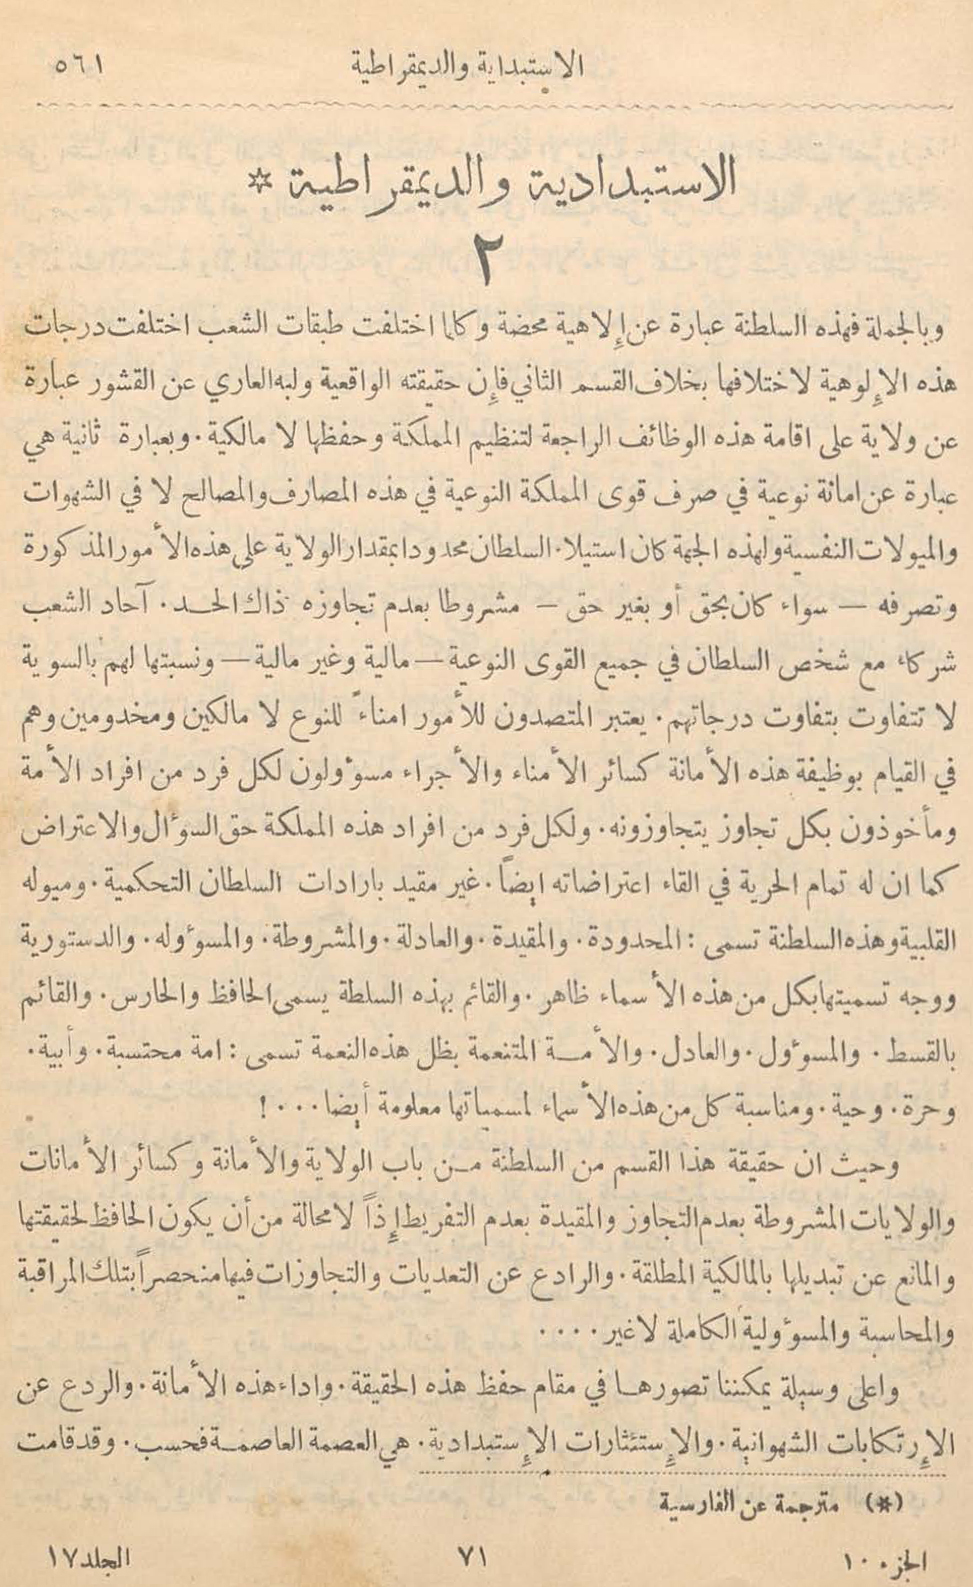 الاستبداية والديمقراطية ٥٦١
الاستبدادية والديمقراطية *
٢
وبالجملة فهذه السلطنة عبارة عن إِلاهية محضة وكلما اختلفت طبقات الشعب اختلفت درجات
هذه الإِلوهية لاختلافها بخلاف القسم الثاني فإِن حقيقته الواقعية ولبه العاري عن القشور عبارة
عن ولاية على اقامة هذه الوظائف الراجعة لتنظيم المملكة وحفظها لا مالكية. وبعبارة ثانية هي
عبارة عن امانة نوعية في صرف قوى المملكة النوعية في هذه المصارف والمصالح لا في الشهوات
والميولات النفسية ولهذه الجهة كان استيلاء السلطان محدودا بمقدار الولاية على هذه الأمور المذكورة
وتصرفه — سواء كان بحق أو بغير حق — مشروطا بعدم تجاوزه ذاك الحد. آحاد الشعب
شركاء مع شخص السلطان في جميع القوى النوعية — مالية وغير مالية — ونسبتها لهم بالسوية
لا تتفاوت بتفاوت درجاتهم. يعتبر المتصدون للأمور امناءً للنوع لا مالكين ومخدومين وهم
في القيام بوظيفة هذه الأمانة كسائر الأمناء والأجراء مسوٴولون لكل فرد من افراد الأمة
ومأخوذون بكل تجاوز يتجاوزونه. ولكل فرد من افراد هذه المملكة حق السوٴال والاعتراض
كما ان له تمام الحرية في القاء اعتراضاته ايضاً. غير مقيد بارادات السلطان التحكمية. وميوله
القلبية وهذه السلطنة تسمى: المحدودة. والمقيدة. والعادلة. والمشروطة. والمسوٴوله. والدستورية
ووجه تسميتها بكل من هذه الأسماء ظاهر. والقائم بهذه السلطة يسمى الحافظ والحارس. والقائم
بالقسط. والمسوٴول. والعادل. والأمة المتنعمة بظل هذه النعمة تسمى: امة محتسبة. وأبية.
وحرة. وحية. ومناسبة كل من هذه الأسماء لمسمياتها معلومة أيضا...!
وحيث ان حقيقة هذا القسم من السلطنة من باب الولاية والأمانة وكسائر الأمانات
والولايات المشروطة بعدم التجاوز والمقيدة بعدم التفريط إِذاً لا محالة من أن يكون الحافظ لحقيقتها
والمانع عن تبديلها بالمالكية المطلقة. والرادع عن التعديات والتجاوزات فيها منحصراً بتلك المراقبة
والمحاسبة والمسوٴولية الكاملة لا غير....
واعلى وسيلة يمكننا تصورها في مقام حفظ هذه الحقيقة. واداء هذه الأمانة. والردع عن
الإِرتكابات الشهوانية. والإِستئثارات الإِستبدادية. هي العصمة العاصمة فحسب. وقد قامت
(*) مترجمة عن الفارسية
الجزء ١٠ ٧١ المجلد ١٧